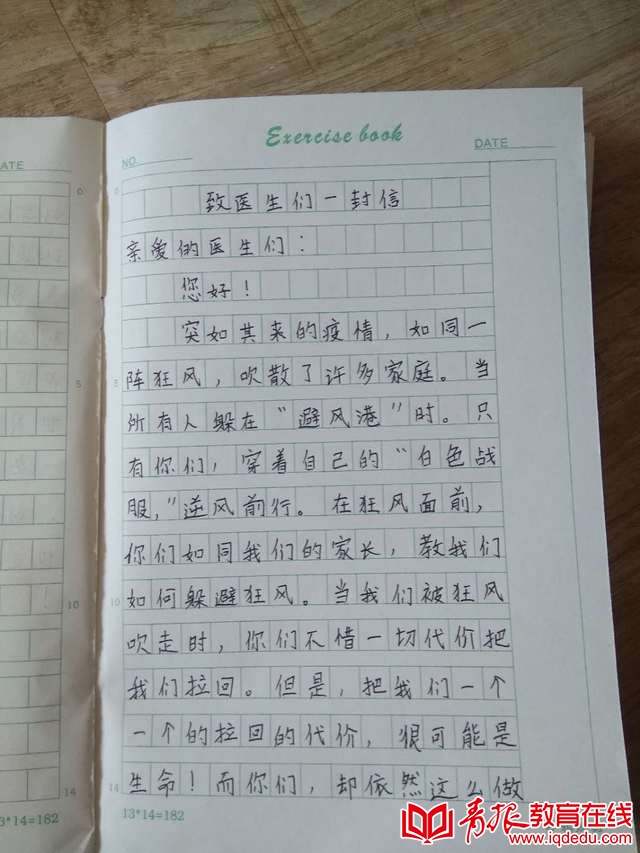 Exercise book
ATE
NO
DATE
0
0
致医生们一封信
亲爱的医生们：
您好！
突如其来的疫情，如同一
5
5
阵狂风，吹散了许多家庭。当
所有人躲在“避风港”时。只
有你们，穿着自己的“白色战
服，”逆风前行。在狂风面前，
你们如同我们的家长，教我们
10
10
如何躲避狂风。当我们被狂风
吹走时，你们不惜一切代价把
我们拉回。但是，把我们一个
一个的拉回的代价，很可能是
14
14
生命！而你们，却依然这么做
3*14=182
13*14=182
青报教育在线
www.iqdedu.com